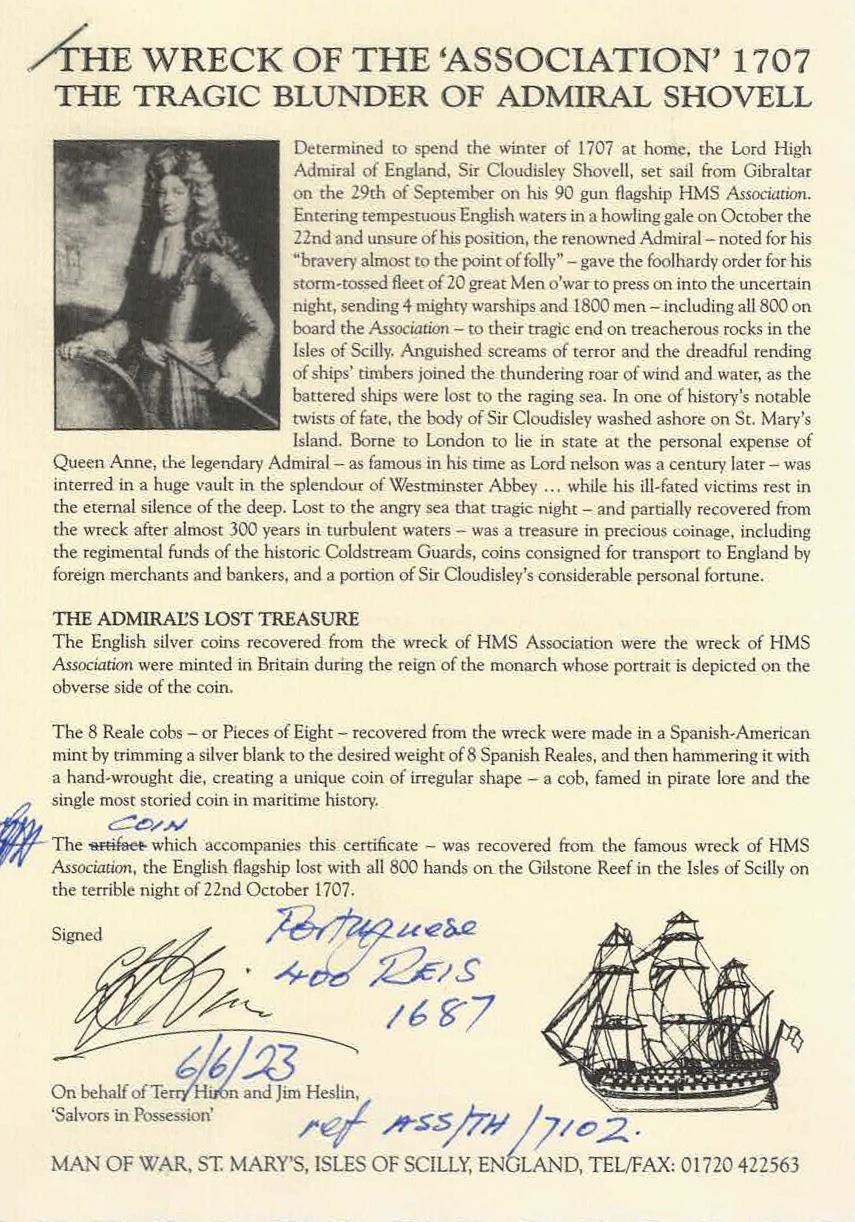 THE WRECK OF THE ‘ASSOCIATION’ 1707
THE TRAGIC BLUNDER OF ADMIRAL SHOVELL
Determined to spend the winter of 1707 at home, the Lord High
Admiral of England, Sir Cloudisley Shovell, set sail from Gibraltar
on the 29th of September on his 90 gun flagship HMS Association.
Entering tempestuous English waters in a howling gale on October the
22nd and unsure of his position, the renowned Admiral – noted for his
“bravery almost to the point of folly” – gave the foolhardy order for his
storm-tossed fleet of 20 great Men o’war to press on into the uncertain
night, sending 4 mighty warships and 1800 men – including all 800 on
board the Association – to their tragic end on treacherous rocks in the
Isles of Scilly. Anguished screams of terror and the dreadful rending
of ships’ timbers joined the thundering roar of wind and water, as the
battered ships were lost to the raging sea. In one of history’s notable
twists of fate, the body of Sir Cloudisley washed ashore on St. Mary’s
Island. Borne to London to lie in state at the personal expense of
Queen Anne, the legendary Admiral – as famous in his time as Lord nelson was a century later – was
interred in a huge vault in the splendour of Westminster Abbey ... while his ill-fated victims rest in
the eternal silence of the deep. Lost to the angry sea that tragic night – and partially recovered from
the wreck after almost 300 years in turbulent waters – was a treasure in precious coinage, including
the regimental funds of the historic Coldstream Guards, coins consigned for transport to England by
foreign merchants and bankers, and a portion of Sir Cloudisley’s considerable personal fortune.
THE ADMIRAL’S LOST TREASURE
The English silver coins recovered from the wreck of HMS Association were the wreck of HMS
Association were minted in Britain during the reign of the monarch whose portrait is depicted on the
obverse side of the coin.
The 8 Reale cobs – or Pieces of Eight – recovered from the wreck were made in a Spanish-American
mint by trimming a silver blank to the desired weight of 8 Spanish Reales, and then hammering it with
a hand-wrought die, creating a unique coin of irregular shape – a cob, famed in pirate lore and the
single most storied coin in maritime history.
COIN
The artifact which accompanies this certificate – was recovered from the famous wreck of HMS
Association, the English flagship lost with all 800 hands on the Gilstone Reef in the Isles of Scilly on
the terrible night of 22nd October 1707.
Signed
Portuguese
400 REIS
1687
6/6/23
On behalf of Terry Hiron and Jim Heslin,
‘Salvors in Possession’
ref ASS/TH/7102.
MAN OF WAR, ST. MARY’S, ISLES OF SCILLY, ENGLAND, TEL/FAX: 01720 422563